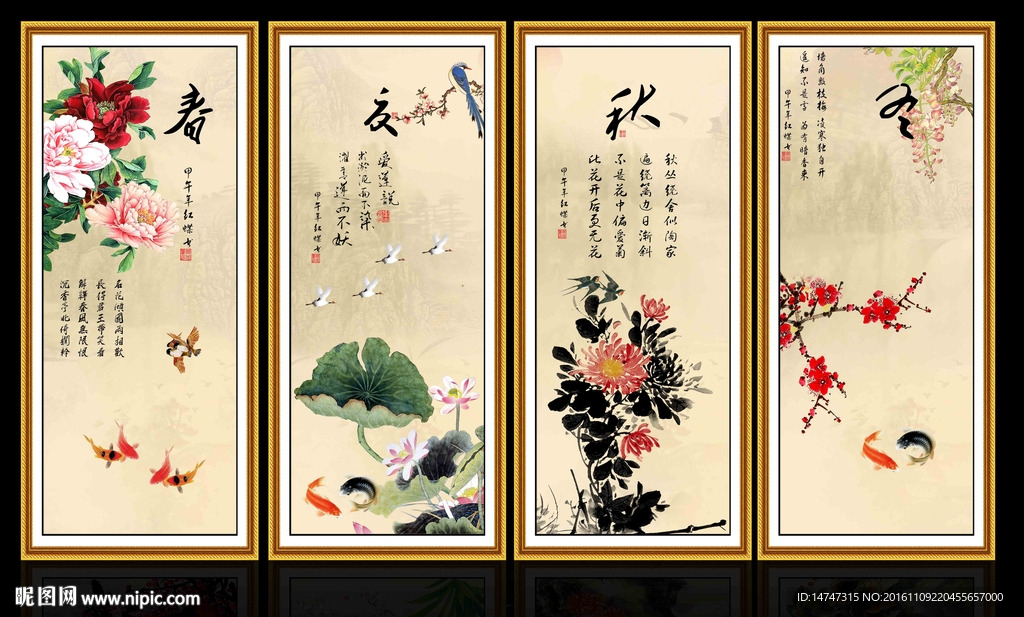 春
甲午年红蝶书
名花倾国两相欢
长得君王带笑看
解释春风无限恨
沉香亭北倚阑干
夏
爱莲说
出淤泥而不染
濯清涟而不妖
甲午年红蝶书
秋
秋丛绕舍似陶家
遍绕篱边日渐斜
不是花中偏爱菊
此花开后更无花
甲午年红蝶书
冬
墙角数枝梅 凌寒独自开
遥知不是雪 为有暗香来
甲午年红蝶书
昵图网 www.nipic.com
ID:14747315 NO:20161109220455657000